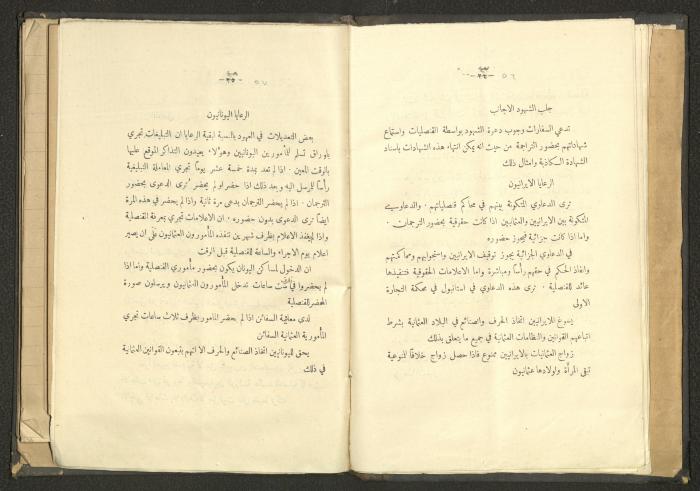 ٥٦
جلب الشهود الاجانب
تدعي السفارات وجوب دعوة الشهود بواسطة القنصليات واستماع
شهاداتهم بحضور التراجمة من حيث انه يمكن انتهاء هذه الشهادات باسناد
الشهادة الكاذبة وامثال ذلك
الرعايا الايرانيون
ترى الدعاوي المتكونة بينهم في محاكم قنصلياتهم . والدعاوي
المتكونة بين الايرانيين والعثمانيين اذا كانت حقوقية بحضور الترجمان .
واما اذا كانت جزائية فيجوز حضوره
في الدعاوي الجزائية يجوز توقيف الايرانيين واستجوابهم ومحاكمتهم
وانفاذ الحكم في حقهم رأساً ومباشرة واما الاعلامات الحقوقية فتنفيذها
عائد للقنصلية . ترى هذه الدعاوي في استانبول في محكمة التجارة
الاولى
يسوغ للايرانيين اتخاذ الحرف والصنائع في البلاد العثمانية بشرط
اتباعهم القوانين والنظامات العثمانية في جميع ما يتعلق بذلك
زواج العثمانيات بالايرانيين ممنوع فاذا حصل زواج خلافاً للممنوعية
تبقى المرأة واولادها عثمانيون
٥٧
الرعايا اليونانيون
بعض التعديلات في العهود بالنسبة لبقية الرعايا ان التبليغات تجري
باوراق تسلم للمأمورين اليونانيين وهؤلاء يعيدون التذاكر الموقع عليها
بالوقت المعين . اذا لم تعد بمدة خمسة عشر يوماً تجري المعاملة التبليغية
رأساً للمرسل اليه وبعد ذلك اذا حضر او لم يحضر ترى الدعوى بحضور
الترجمان . اذا لم يحضر الترجمان يدعى مرة ثانية واذا لم يحضر في هذه المرة
ايضاً ترى الدعوى بدون حضوره . ان الاعلامات تجري بمعرفة القنصلية
واذا لم ينفذ الاعلام بظرف شهرين تنفذه المأمورون العثمانيون على ان يصير
اعلام يوم الاجراء والساعة للقنصلية قبل الوقت
ان الدخول لمساكن اليونان يكون بحضور مأموري القنصلية واما اذا
لم يحضروا في ست ساعات تدخل المأمورون العثمانيون ويرسلون صورة
المحضر للقنصلية
لدى معاينة السفائن اذا لم يحضر المأمور بظرف ثلاث ساعات تجري
المأمورية العثمانية السفائن
يحق لليونانيين اتخاذ الصنائع والحرف الا انهم يتبعون القوانين العثمانية
في ذلك